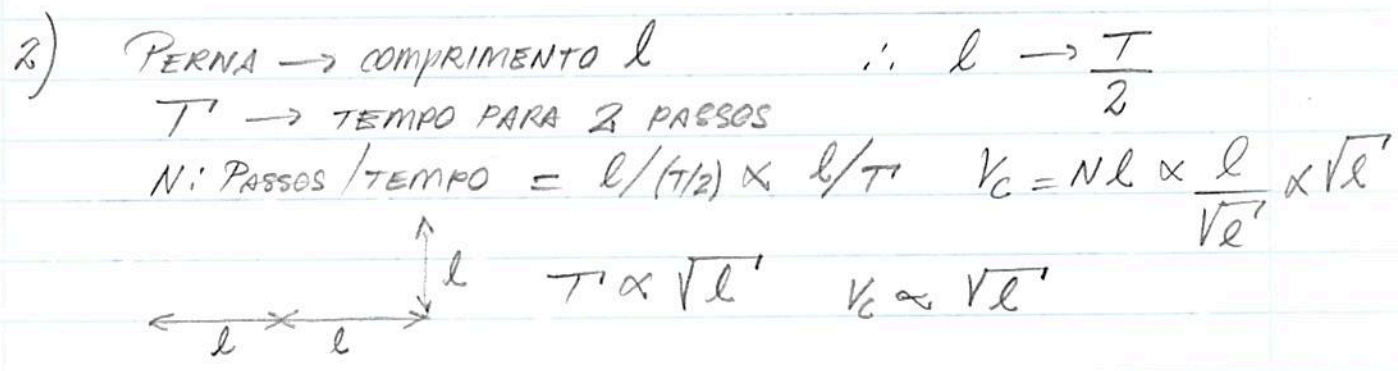 2) PERNA → COMPRIMENTO l ∴ l → T/2
T → TEMPO PARA 2 PASSOS
N: PASSOS/TEMPO = l/(T/2) ∝ l/T Vc = Nl ∝ l/√l ∝ √l
l T ∝ √l Vc ∝ √l
l l